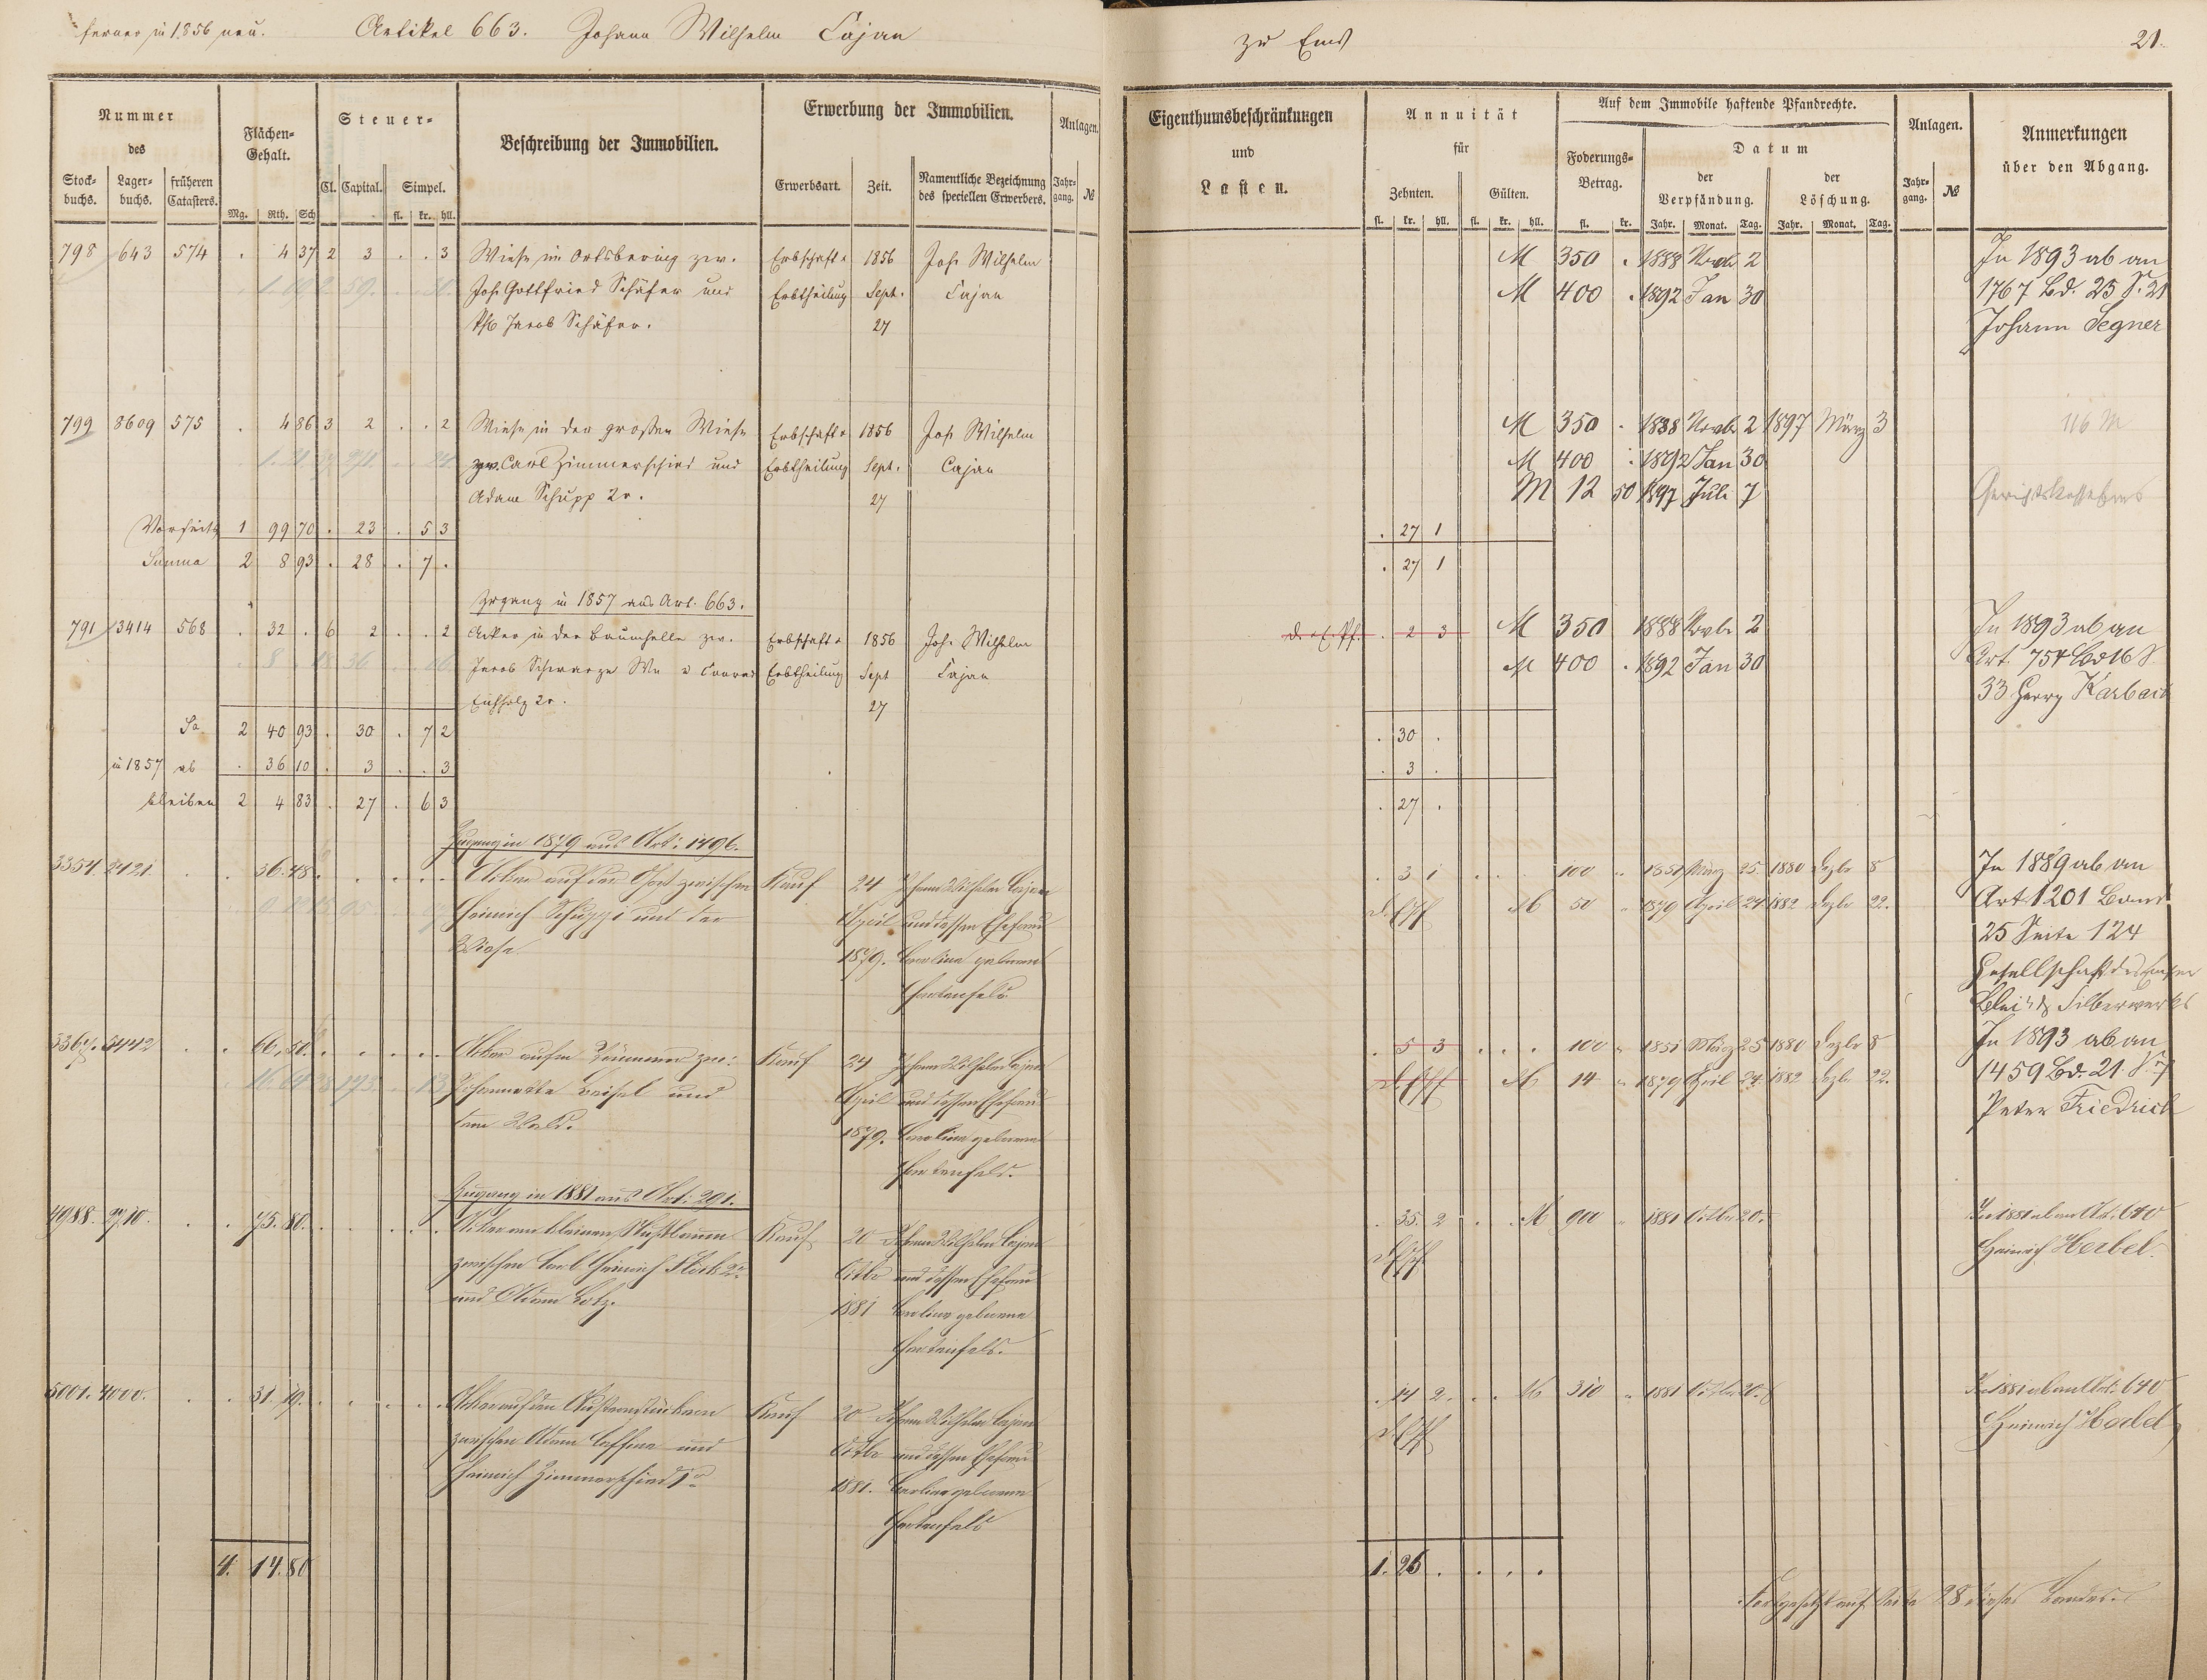 ferner in 1856 neu. Artikel 663. Johann Wilhelm Cajan
zu Ems 21.
Nummer
des
Stock-
buchs.
Lager-
buchs.
früheren
Catasters.
Flächen-
Gehalt.
Mg. Rth. Sch
Steuer-
Cl. Capital. Simpel.
fl. kr. hll.
Beschreibung der Immobilien.
Erwerbung der Immobilien.
Erwerbsart. Zeit.
Namentliche Bezeichnung
des speciellen Erwerbers.
Anlagen.
Jahr-
gang. №
Eigenthumsbeschränkungen
und
Lasten.
Annuität
für
Zehnten. Gülten.
fl. kr. hll. fl. kr. hll.
Auf dem Immobile haftende Pfandrechte.
Foderungs-
Betrag.
fl. kr.
Datum
der
Verpfändung.
Jahr. Monat. Tag.
der
Löschung.
Jahr. Monat. Tag.
Anlagen.
Jahr-
gang. №
Anmerkungen
über den Abgang.
798 643 574 . 4 37 2 3 . . 3 Wiese im Ortsbering zw. Erbschaft u 1856 Joh. Wilhelm
Joh. Gottfried Schäfer und Erbtheilung Sept. Cajan
Jacob Schäfer. 27
M 350 . 1888 Novbr 2
M 400 . 1892 Jan 30
In 1893 ab an
1767 Bd. 23 S. 21
Johann Segner
799 8609 575 . 4 86 3 2 . . 2 Wiese in der großen Wiese Erbschaft u 1856 Joh Wilhelm
zw. Carl Zimmerschied und Erbtheilung Sept. Cajan
Adam Schupp 2r. 27
M 350 . 1888 Novbr 2 1897 März 3
M 400 . 1892 Jan 30
M 12 50 1897 Juli 7
116 M
Vorseite 1 99 70 . 23 . 5 3
. 27 1
Summa 2 8 93 . 28 . 7 .
. 27 1
Zugang in 1857 aus Art. 663.
791 3414 568 . 32 . 6 2 . . 2 Acker in der Baumhelle zw. Erbschaft u 1856 Joh. Wilhelm
Jacob Schwarze We u Conrad Erbtheilung Sept Cajan
Eichholz 2r. 27
. 2 3 M 350 1888 Novbr 2
M 400 . 1892 Jan 30
In 1893 ab an
Art. 754 Bd 16 S
33 Karbach
Sa 2 40 93 . 30 . 7 2
. 30 .
in 1857 ab . 36 10 . 3 . . 3
. 3 .
bleiben 2 4 83 . 27 . 6 3
. 27 .
Zugang in 1879 aus Art: 1496.
3354 2421 . . 36. 48. Acker auf der zwischen Kauf 24 Johann Wilhelm Cajan
Heinrich Schupp 1 und der April und dessen Ehefrau
Wiese. 1879. Caroline geborene
Hartenfels
. 3 1 100 1851 März 25. 1880 Dezbr 8
M 50 1879 April 24 1882 Dezbr 22.
In 1889 ab an
Art. 1201 Band
25 Seite 124
Gesellschaft des Emser
Blei & Silberwerks
3367. 5442 . . 66. 50. Acker zw: Kauf 24 Johann Wilhelm Cajan
Johannette und April und dessen Ehefrau
dem Wald. 1879. Caroline geborene
Hartenfels.
. 5 3 100 1851 März 25 1880 Dezbr 8
M 14 1879 April 24. 1882 Dezbr 22.
In 1893 ab an
1459 Bd. 21 S. 7
Peter Friedrich
Zugang in 1881 aus Art: 291.
4988. 2710. . . 75. 80. Acker am kleinen Nußbaum Kauf 20 Johann Wilhelm Cajan
zwischen Carl Heinrich 2r. Octbr und dessen Ehefrau
und Adam Lotz. 1881 Caroline geborene
Hartenfels.
. 35. 2 M 900 1881 Octbr 20.
In 1881 ab an Art. 640
Heinrich Herbel.
5001. 4000. . . 31. 19. Acker auf den zwischen Kauf 20 Johann Wilhelm Cajan
zwischen Adam und Octbr und dessen Ehefrau
Heinrich Zimmerschied 1r 1881. Caroline geborene
Hartenfels
. 14 2. M 310 1881 Octbr 20.
In 1881 ab an Art. 640
Heinrich Herbel
4. 14. 80
1. 26 . . . .
Fortgesetzt auf Seite 28 dieses Bandes.